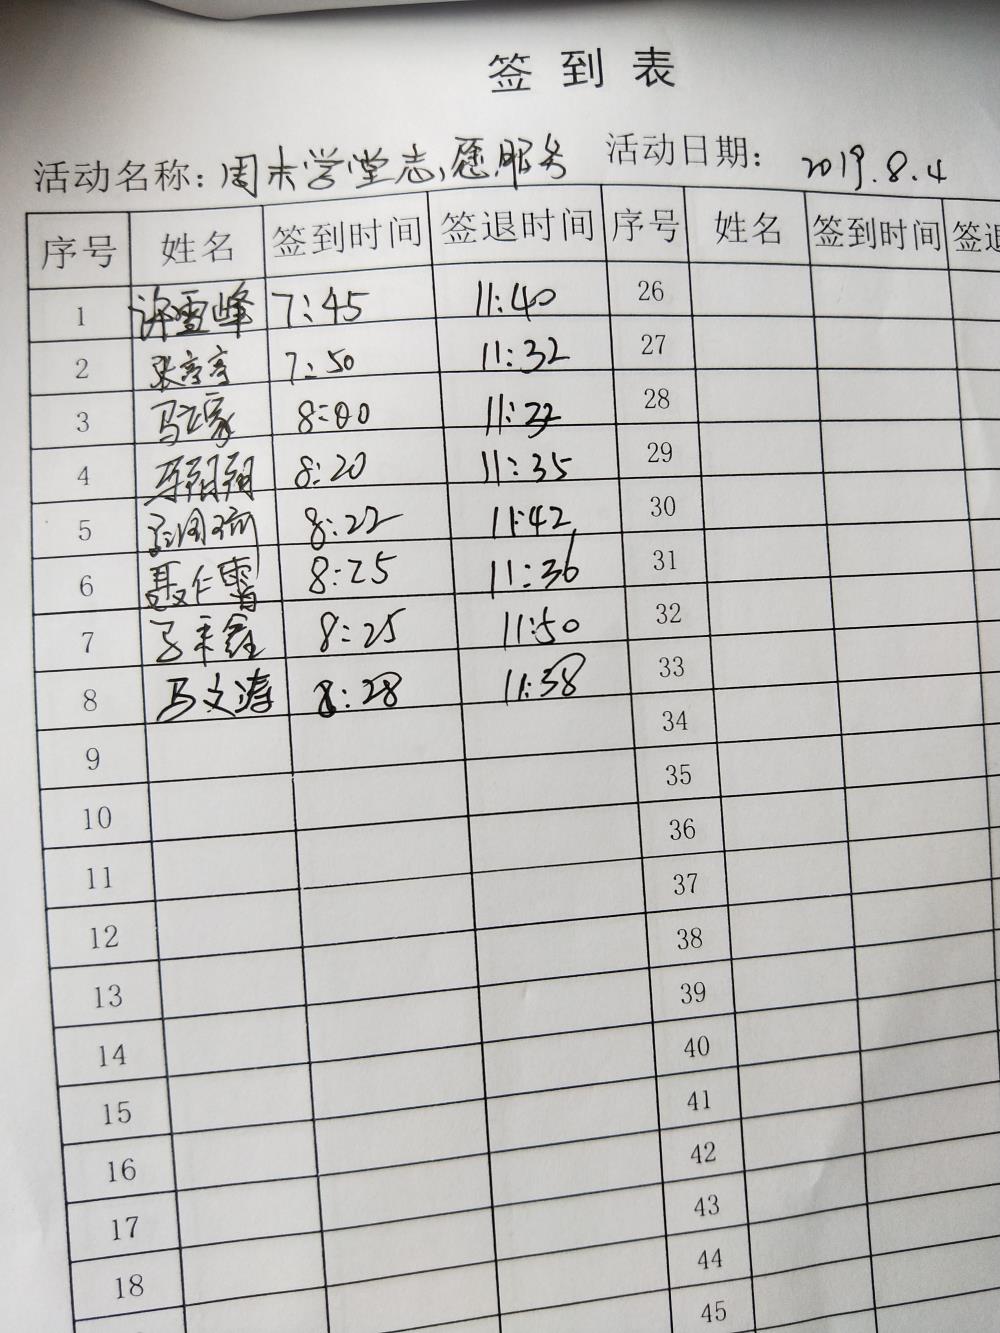 签到表
活动名称：周末学堂志愿服务 活动日期：2019.8.4
序号 姓名 签到时间 签退时间 序号 姓名 签到时间 签退
1 许雪峰 7:45 11:40 26
2 张亭亭 7:50 11:32 27
3 马 8:00 11:32 28
4 马翔翔 8:20 11:35 29
5 8:22 11:42 30
6 聂仁雪 8:25 11:36 31
7 8:25 11:50 32
8 马文涛 8:28 11:38 33
9 34
10 35
11 36
12 37
13 38
14 39
15 40
16 41
17 42
18 43
44
45